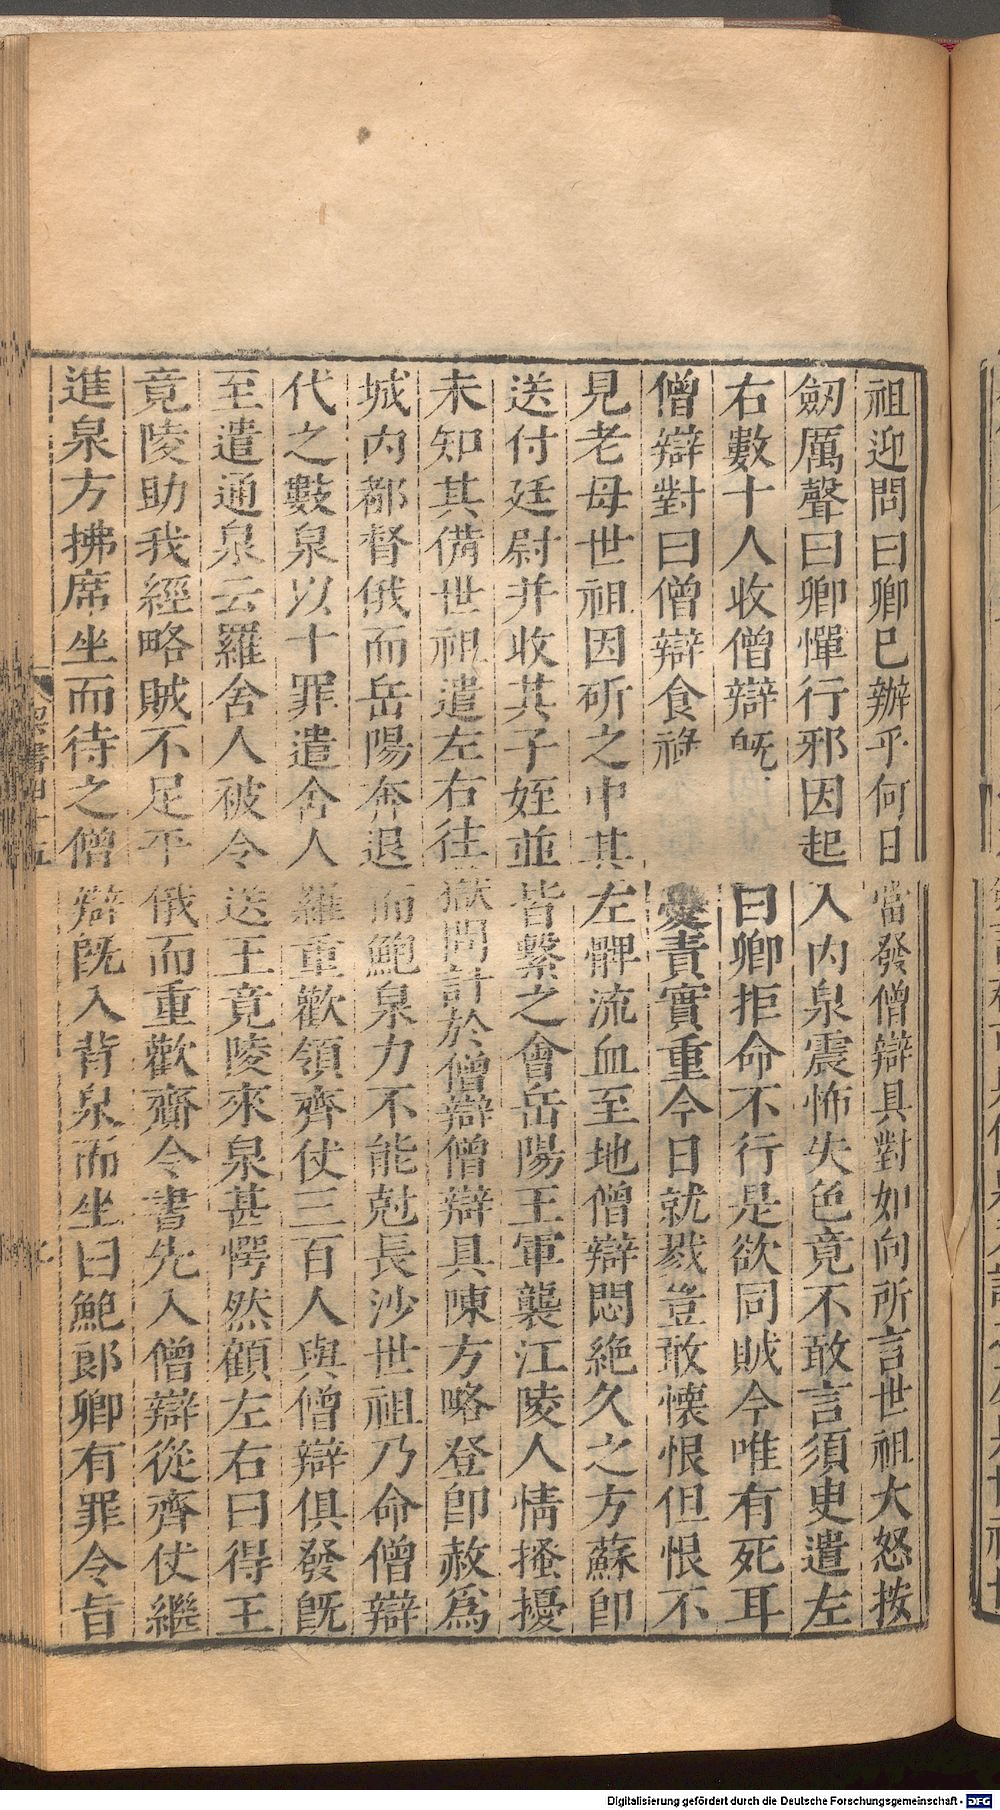 祖迎問曰卿已辦乎何日當發僧辯具對如向所言世祖大怒按
劒厲聲曰卿憚行邪因起入内泉震怖失色竟不敢言須臾遣左
右數十人收僧辯既曰卿拒命不行是欲同賊今唯有死耳
僧辯對曰僧辯食祿憂責實重今日就戮豈敢懷恨但恨不
見老母世祖因斫之中其左髀流血至地僧辯悶絶久之方蘇即
送付廷尉并收其子姪並皆繫之會岳陽王軍襲江陵人情搔擾
未知其備世祖遣左右往獄問計於僧辯僧辯具陳方略登即赦爲
城内都督俄而岳陽奔退而鮑泉力不能尅長沙世祖乃命僧辯
代之數泉以十罪遣舍人羅重歡領齊仗三百人與僧辯俱發既
至遣通泉云羅舍人被令送王竟陵來泉甚愕然顧左右曰得王
竟陵助我經略賊不足平俄而重歡齎令書先入僧辯從齊仗繼
進泉方拂席坐而待之僧辯既入背泉而坐曰鮑郎卿有罪令旨
梁書四十五
Digitalisierung gefördert durch die Deutsche Forschungsgemeinschaft - DFG